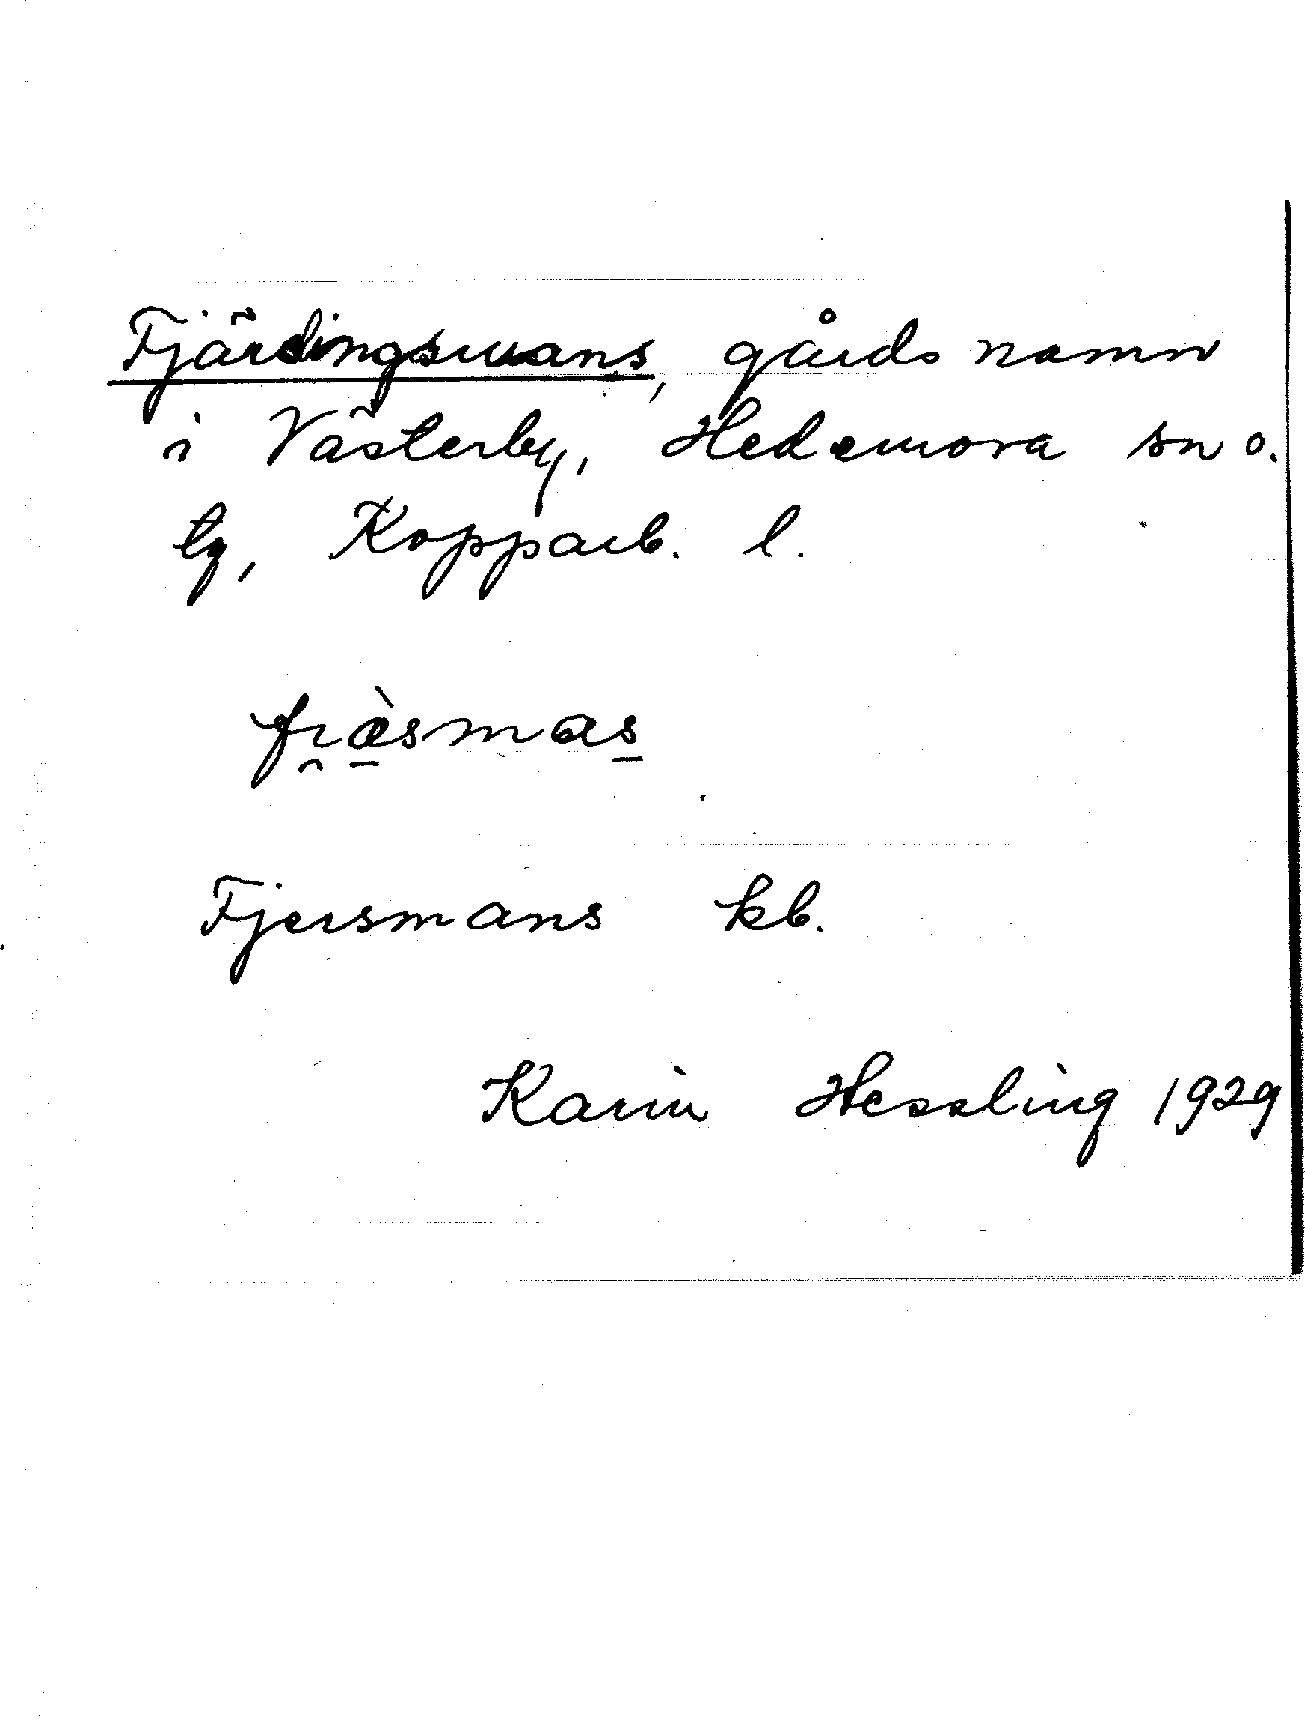 Fjärdingsmans, gårdsnamn
i Västerby, Hedemora sn o.
tg, Kopparb. l.
fi̯æ̀smas
Fjersmans kb.
Karin Hessling 1929